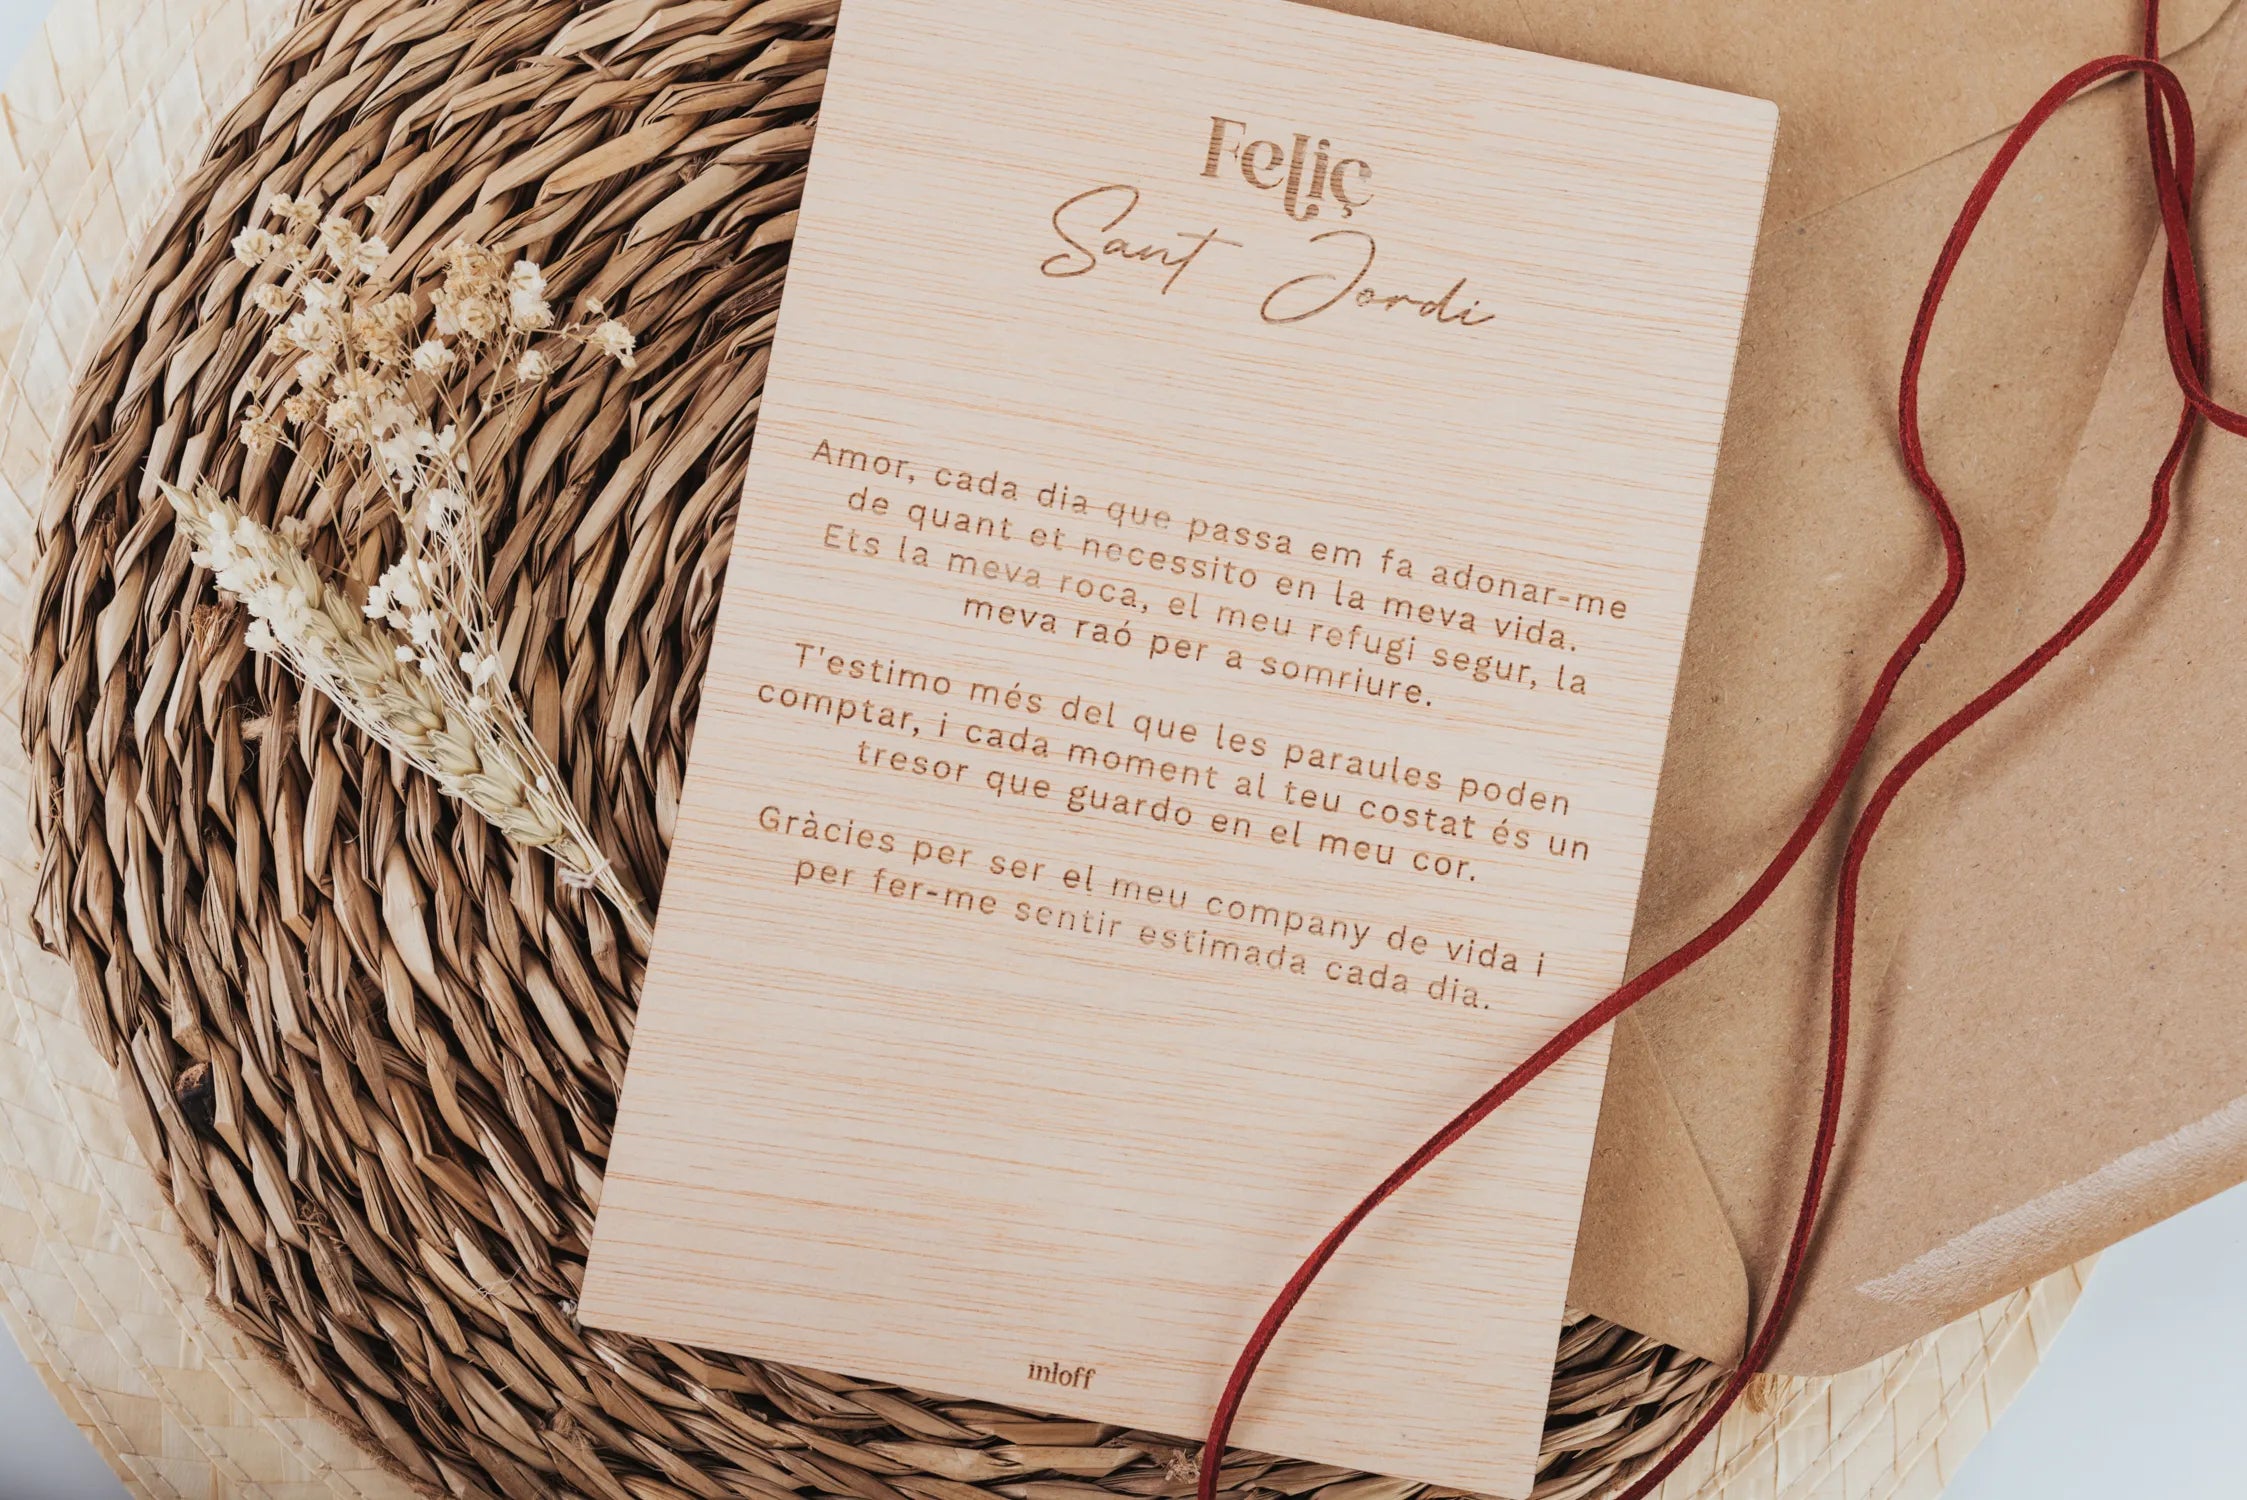 Feliç
Sant Jordi
Amor, cada dia que passa em fa adonar-me
de quant et necessito en la meva vida.
Ets la meva roca, el meu refugi segur, la
meva raó per a somriure.
T'estimo més del que les paraules poden
comptar, i cada moment al teu costat és un
tresor que guardo en el meu cor.
Gràcies per ser el meu company de vida i
per fer-me sentir estimada cada dia.
inloff